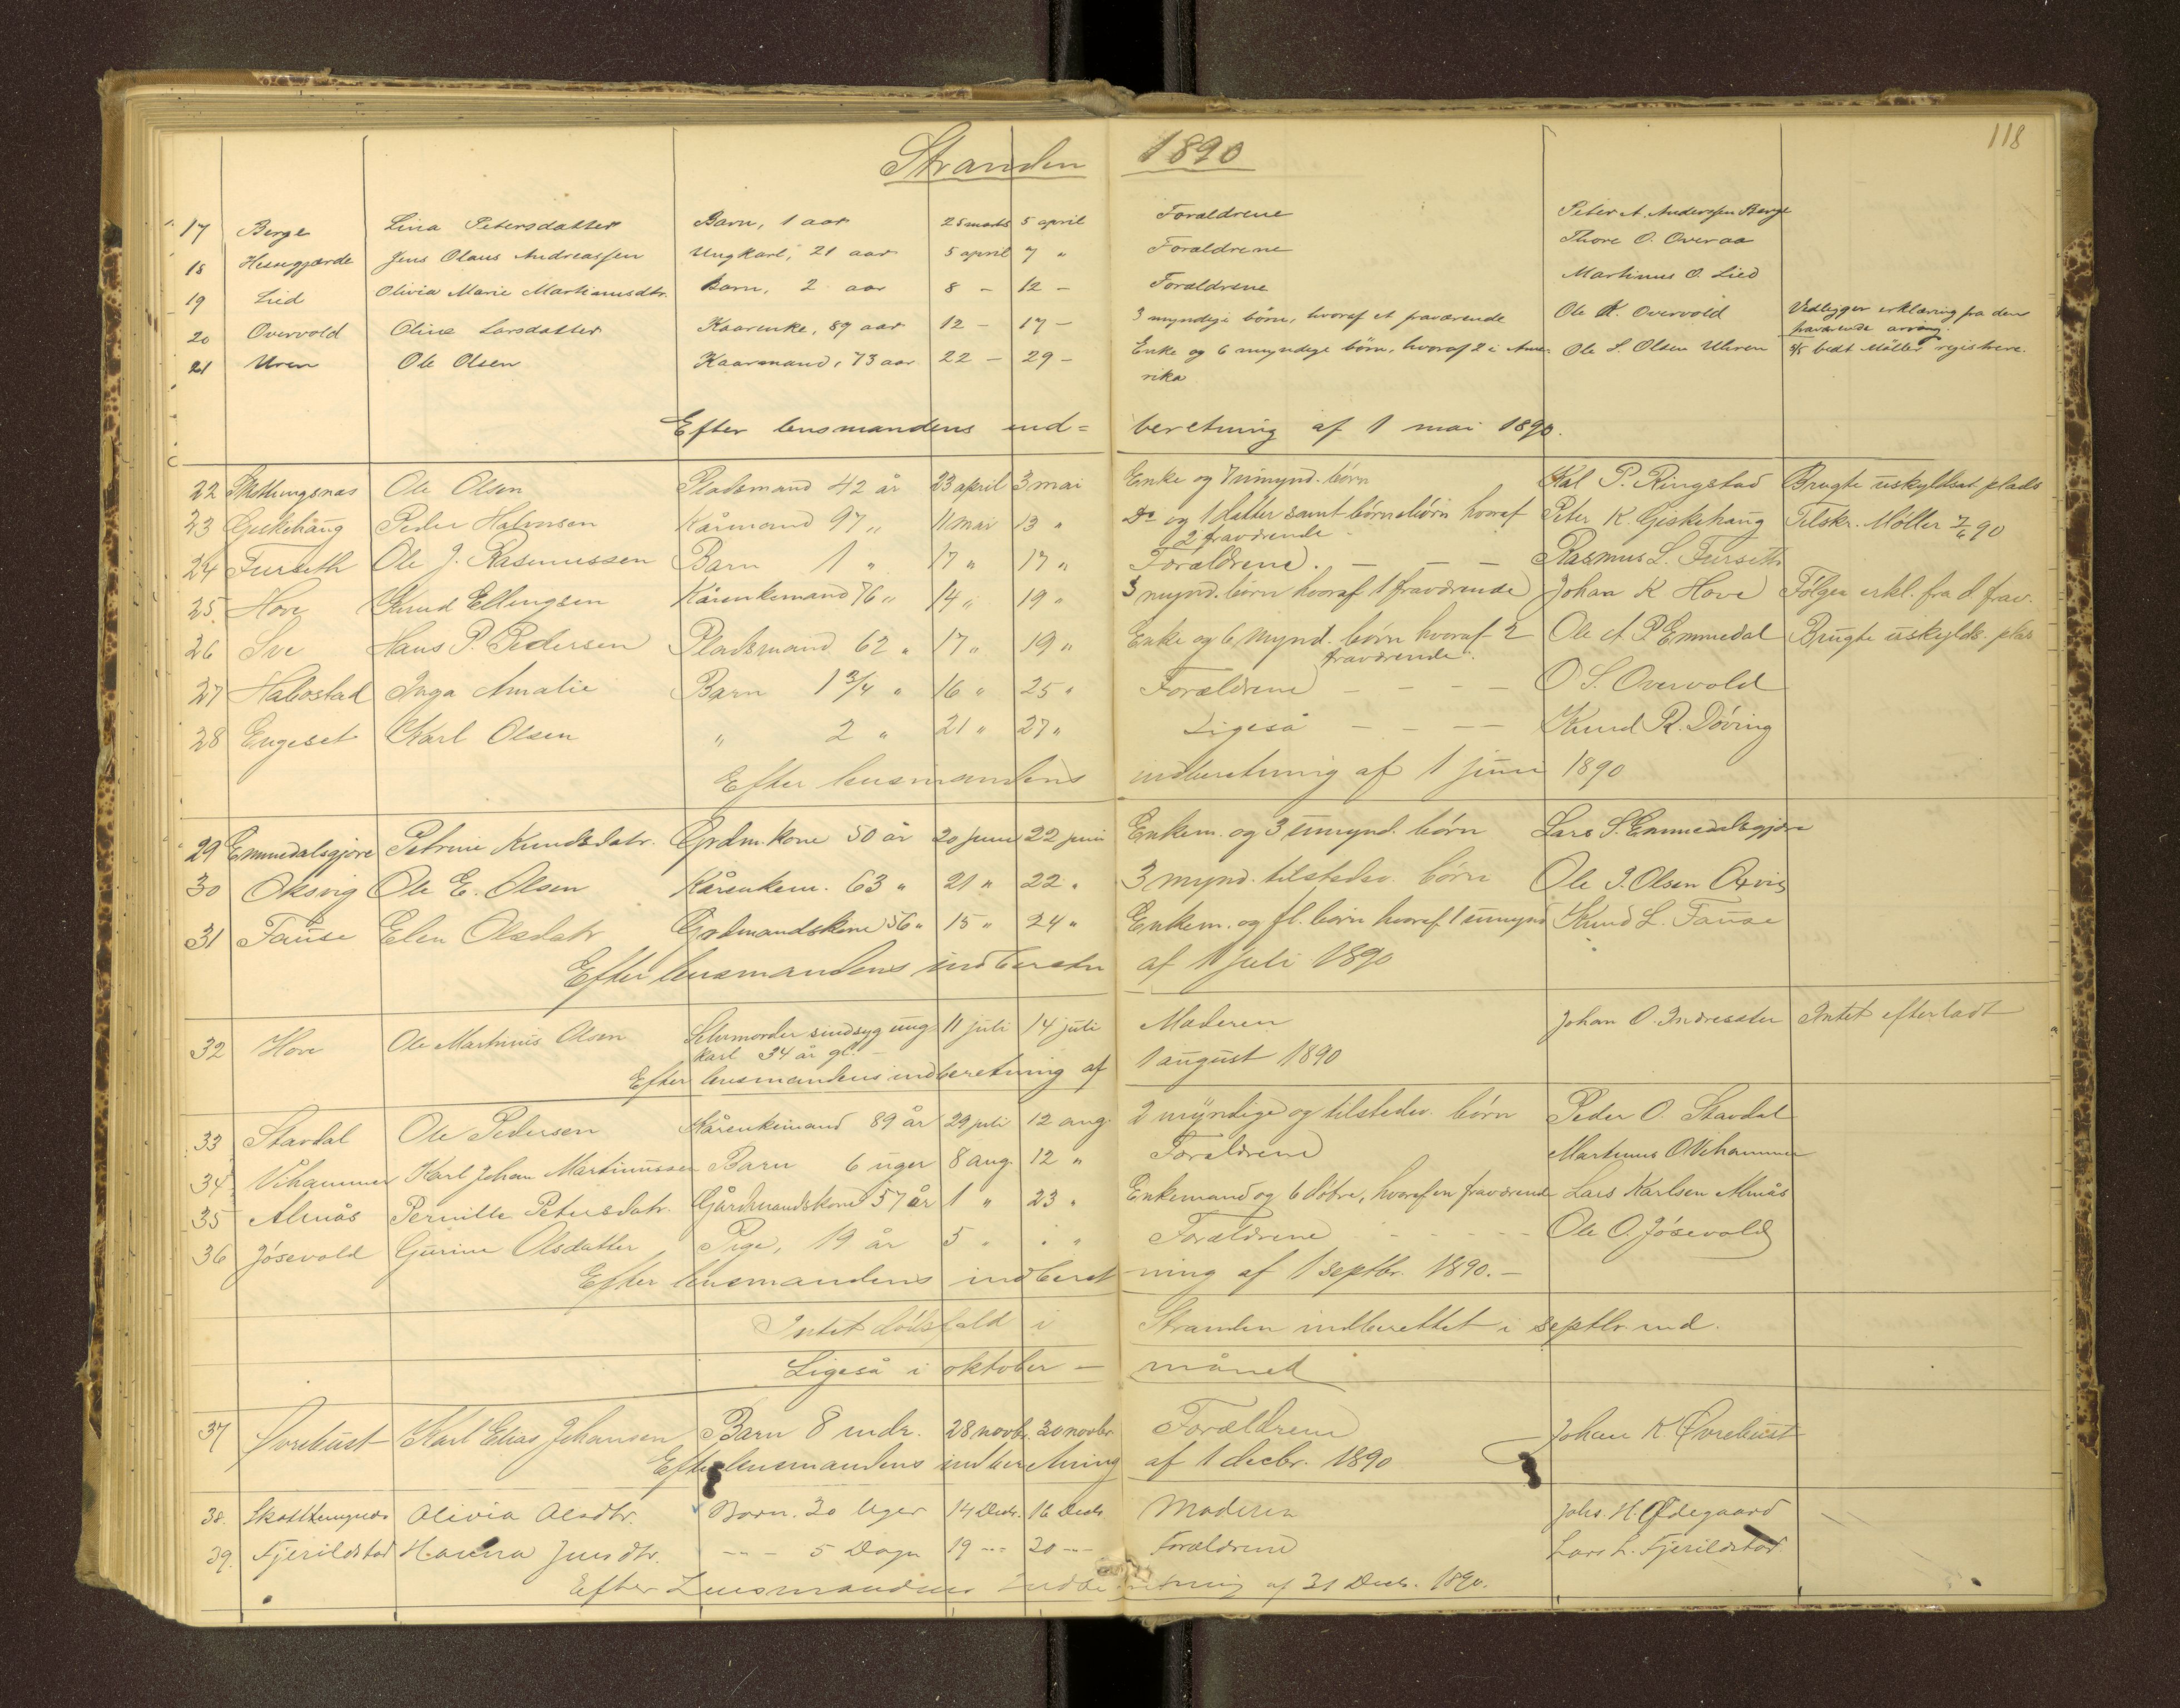 118
Stranden 1890
17 Berge Lina Petersdatter Barn, 1 aar 25 marts 5 april Forældrene Peter A. Anderssen Berge
18 Jens Olaus Andreassen Ungkarl, 21 aar 5 april 7 " Forældrene Thore O. Overaa
19 Lied Olivia Marie Martinusdtr. Barn, 2 aar 8 - 12 - Forældrene Martinus O. Lied
20 Overvold Oline Larsdatter Kaarenke, 89 aar 12 - 17 - 3 myndige børn, hvoraf et fraværende Ole K. Overvold Vedligger erklæring fra den
fraværende arving.
21 Uren Ole Olsen Kaarmand, 73 aar 22 - 29 - Enke og 6 myndige børn, hvoraf 2 i Ame- Ole L. Olsen Uhren bedt Møller registrere.
rika
Efter lensmandens ind= beretning af 1 mai 1890.
22 Ole Olsen Pladsmand 42 år 23 april 3 mai Enke og 7 umynd. børn Kal P. Ringstad Brugte uskyldsat plads
23 Giskehaug Peder Halvorsen Kårmand 97 " 11 mai 13 " Do og 1 datter samt børnebørn hvoraf Peter K. Giskehaug Tilskr. Møller 7/6 90
2 fraværende
24 Furseth Ole J. Rasmussen Barn 1 " 17 " 17 " Forældrene. - - - Rasmus L. Furseth
25. Hove Knud Ellingsen Kårenkemand 76 " 14 " 19 " 3 mynd. børn hvoraf 1 fraværende Johan K Hove Følger erkl. fra d. frav.
26 Sve Hans P. Pedersen Pladsmand 62 " 17 " 19 " Enke og 6 mynd. børn hvoraf 2 Ole A P Emmedal Brugte uskylds. plas
fraværende.
27 Habostad Inga Amalie Barn 1 3/4 " 16 " 25 " Forældrene - - - - O S. Overvold
28 Engeset Karl Olsen " 2 " 21 " 27 " Ligeså - - - Knud R. Døving
Efter lensmandens indberetning af 1 juni 1890
29 Emmedalsgjøre Petrine Knudsdatr. Grdm.kone 50 år 20 juni 22 juni Enkem. og 3 umynd. børn Lars S. Emmedalsgjøre
30 Oksvig Ole E. Olsen Kårenkem. 63 " 21 " 22 " 3 mynd. tilstedev. børn Ole J. Olsen Oxvig
31 Fause Elen Olsdatr Grdmandskone 56 " 15 " 24 " Enkem. og fl. børn hvoraf 1 umynd Knud L. Fause
Efter lensmandens indberetn af 1 juli 1890
32 Hove Ole Martinus Olsen Selvmorder sindsyg ung 11 juli 14 juli Moderen Johan O. Indresæter Intet efterladt
karl 34 år gl. -
Efter lensmandens indberetning af 1 august 1890
33 Stavdal Ole Pedersen Kårenkemand 89 år 29 juli 12 aug. 2 myndige og tilstedev. børn Peder O. Stavdal
34 Vihammer Karl Johan Martinussen Barn 6 uger 8 aug. 12 " Forældrene Martinus O Vihammer
35 Almås Pernille Petersdatr. Gårdmandskone 57 år 1 " 23 " Enkemand og 6 døtre, hvoraf en fraværende Lars Karlsen Almås
36 Jøsevold Gurine Olsdatter Pige, 19 år 5 " " " Forældrene - - - - - Ole O. Jøsevold
Efter lensmandens indberet- ning af 1 septbr. 1890. -
Intet dødsfald i Stranden indberettet i septbr. md.
Ligeså i oktober - måned
37 Øvrebust Karl Elias Johansen Barn 8 mdr. 28 novbr. 30 novbr. Forældrene Johan K. Øvrebust
Efter lensmandens indberetning af 1 decbr. 1890
38. Olivia Olsdtr. Barn. 30 Uger 14 Decb. 16 Decb Moderen Johs. H. Ødegaard
39. Fjerildstad Hanna Jensdtr. - - - 5 Dage 19 - - 30 - - Forældrene Lars L. Fjerildstad
Efter Lensmandens Indberetning af 31 Decb. 1890.